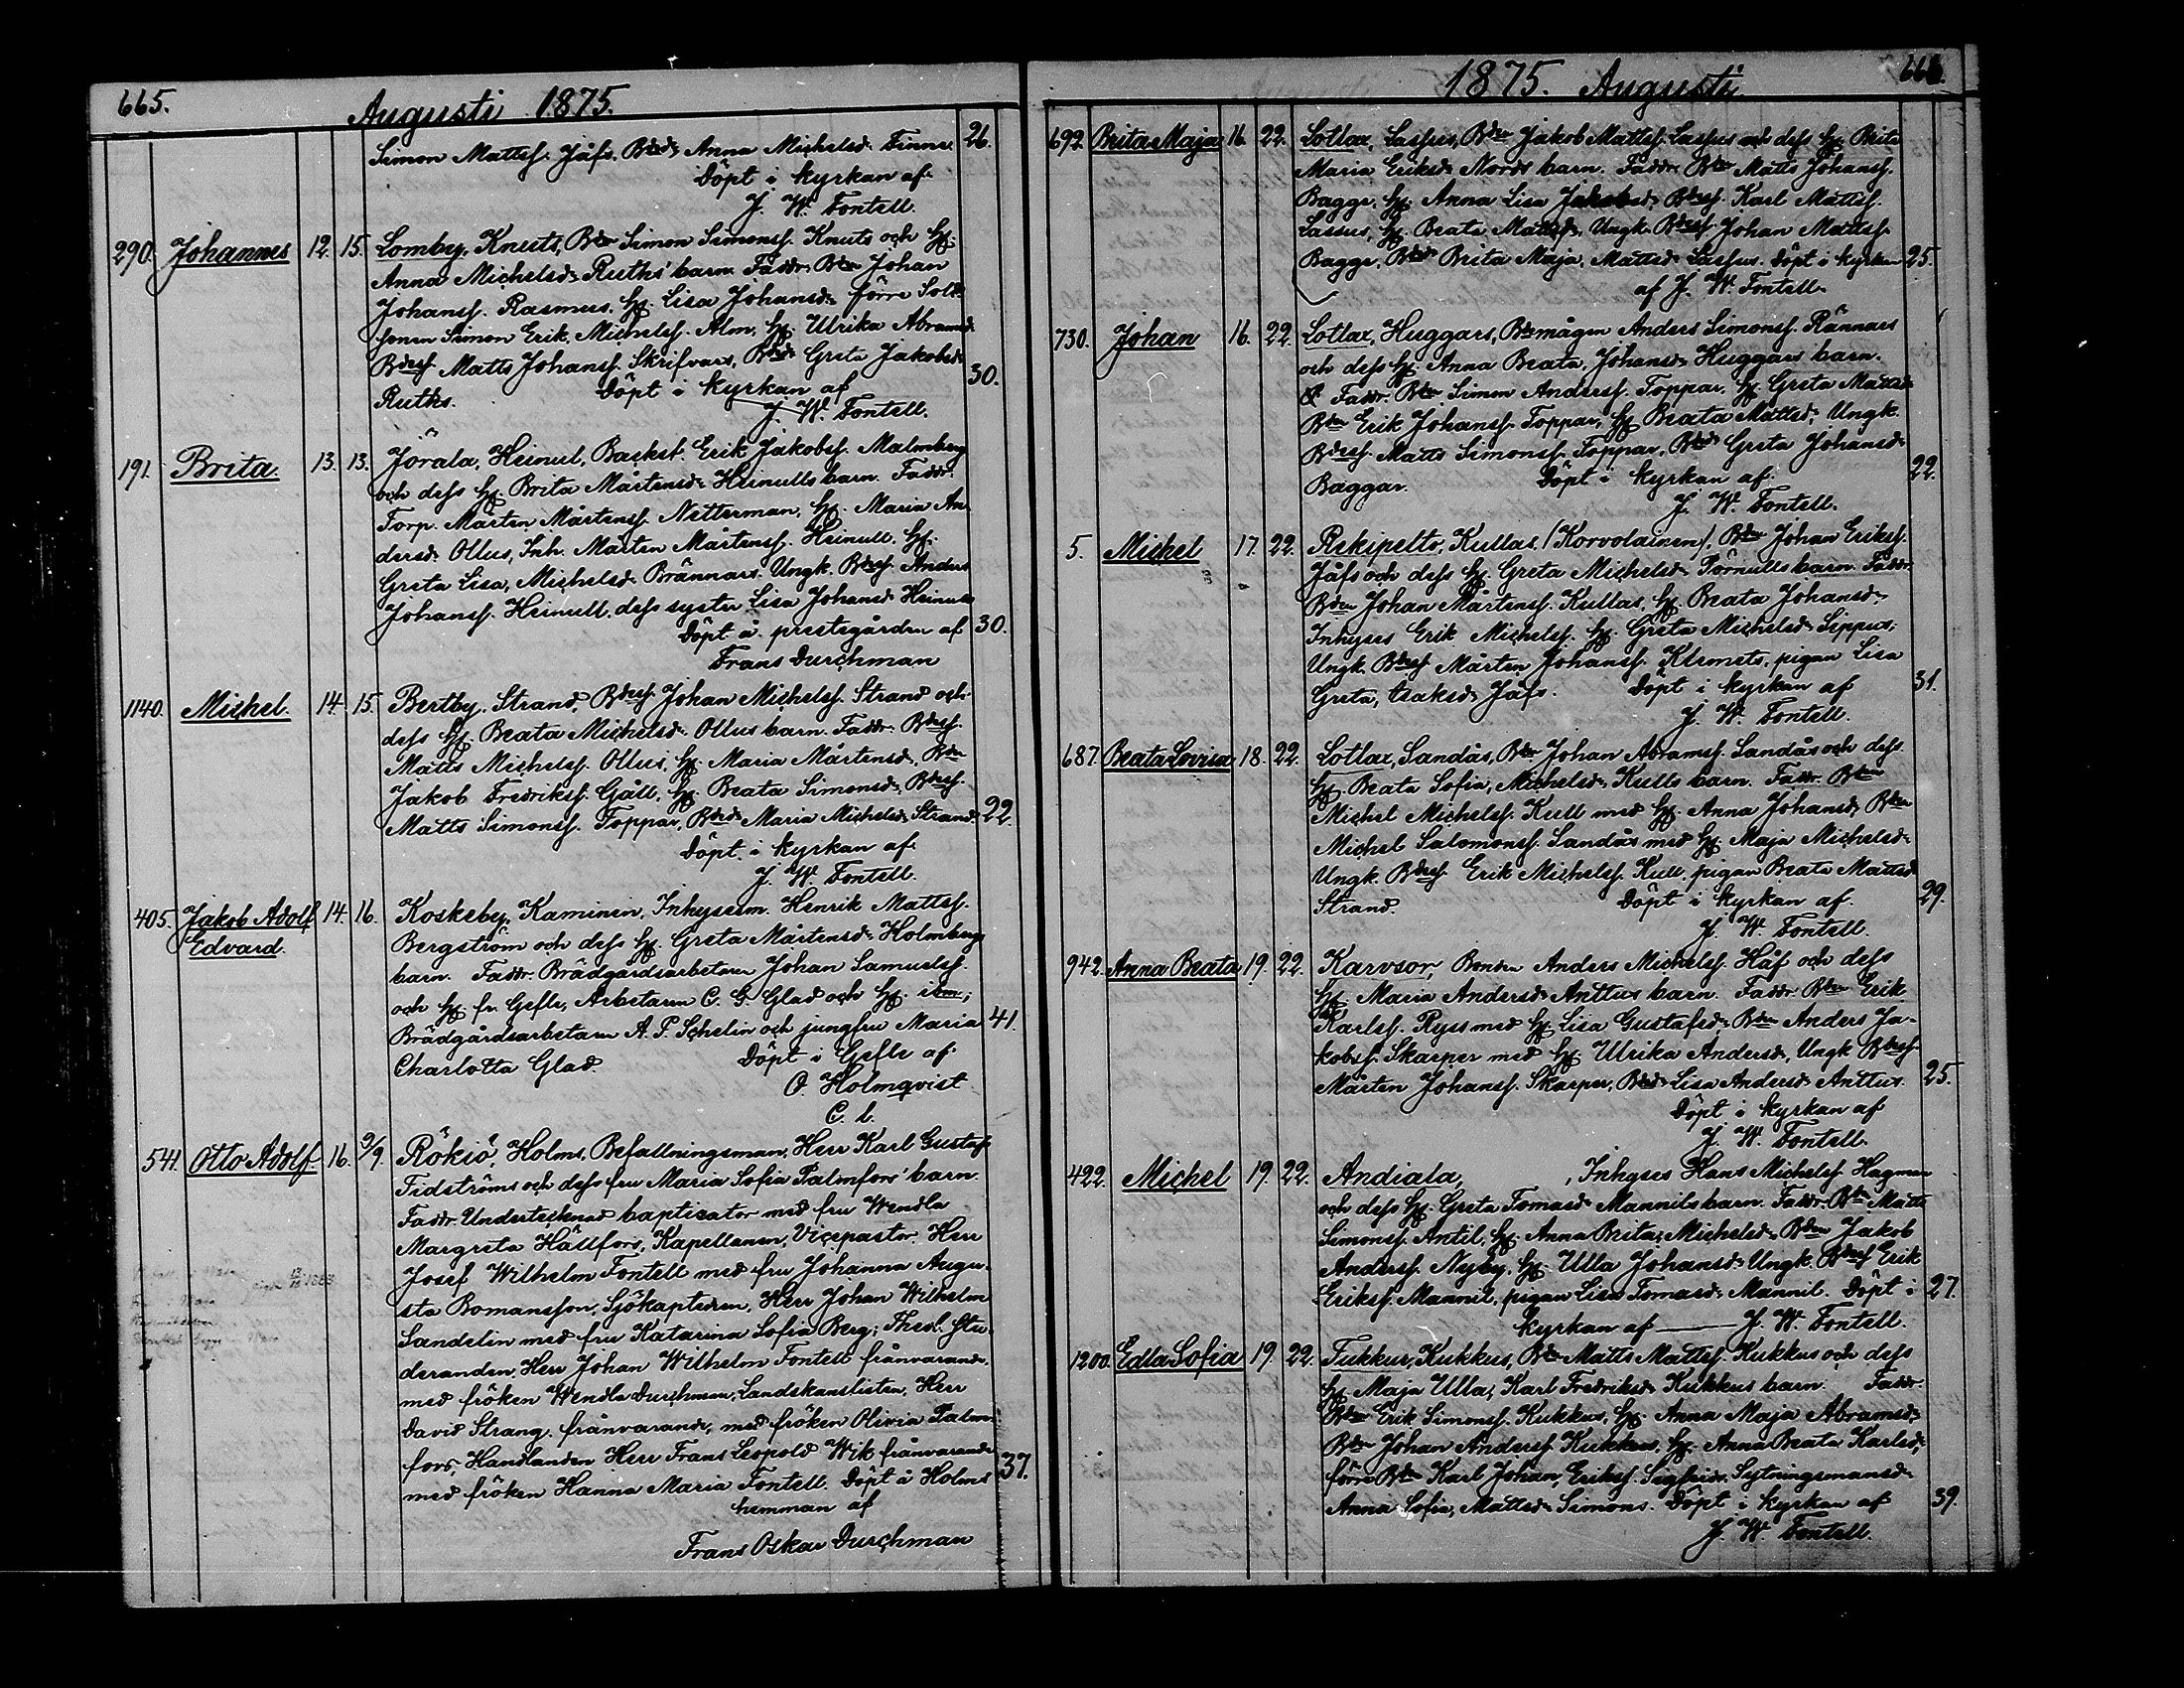 665.
Augusti 1875.
Simon Mattsf. Jåfs. Bded. Anna Michelsd. Finne. 26.
Döpt i kyrkan af
J. W. Fontell.
290. Johannes 12. 15. Lomby, Knuts, Bden Simon Simonsf. Knuts och Hu
Anna Michelsd. Ruths' barn. Faddr. Bden Johan
Johansf. Rasmus, Hu. Lisa Johansd. förre Sold.
sonen Simon Erik, Michelsf. Alm, Hu. Ulrika Abramsd.
Bdesf. Matts Johansf. Skrifvars, Bded. Greta Jakobsd.
Ruths. Döpt i kyrkan af 30.
J. W. Fontell.
191. Brita. 13. 13. Jörala, Heinul, Backst. Erik Jakobsf. Malmberg
och dess Hu. Brita Mårtensd. Heinulls barn. Faddr.
Torp. Mårten Mårtensf. Netterman, Hu. Maria An-
dersd. Ollus, Inh. Mårten Mårtensf. Heinull, Hu.
Greta Lisa, Michelsd. Brännars. Ungk. Bdesf. Anders
Johansf. Heinull. dess syster Lisa Johansd. Heinull
Döpt å prestegården af 30.
Frans Durchman
1140. Michel. 14. 15. Bertby, Strand, Bdesf. Johan Michelsf. Strand och
dess Hu. Beata Michelsd. Ollus barn. Faddr. Bdesf.
Matts Michelsf. Ollus, Hu. Maria Mårtensd., Bden
Jakob Fredriksf. Gåll, Hu. Beata Simonsd., Bdesf.
Matts Simonsf. Toppar, Bded. Maria Michelsd. Strand. 22.
Döpt i kyrkan af
J. W. Fontell.
405. Jakob Adolf 14. 16. Koskeby, Kaminen, Inhysesm. Henrik Mattsf.
Edvard. Bergström och dess Hu. Greta Mårtensd. Holmbergs
barn. Faddr. Brädgårdsarbetaren Johan Samuelsf.
och Hu. fr. Gefle, Arbetaren C. G. Glad och Hu. ibm;
Brädgårdsarbetaren A. P. Schelin och jungfru Maria 41.
Charlotta Glad. Döpt i Gefle af
O. Holmqvist
C. l.
541. Otto Adolf. 16. 9/9. Rökiö, Holms, Befallningsman, Herr Karl Gustaf
Tidströms och dess fru Maria Sofia Palmfors' barn.
Faddr. Undertecknad baptisator med fru Wendla
Margreta Hällfors, Kapellanen, Vicepastor Herr
Josef Wilhelm Fontell med fru Johanna Augu-
sta Romansson, Sjökaptenen, Herr Johan Wilhelm
Sandelin med fru Katarina Sofia Berg; Theol. Stu-
deranden, Herr Johan Wilhelm Fontell frånvarande,
med fröken Wendla Durchman, Landskanslisten, Herr
David Strang, frånvarande, med fröken Olivia Palm-
fors, Handlanden Herr Frans Leopold Wik frånvarande
med fröken Hanna Maria Fontell. Döpt å Holms 37.
hemman af
Frans Oskar Durchman
1875. Augusti.
666.
692. Brita Maja 16. 22. Lotlax, Lassus, Bden Jakob Mattsf. Lassus och dess Hu. Brita
Maria Eriksd. Nords barn. Faddr. Bden Matts Johansf.
Bagge, Hu. Anna Lisa Jakobsd. Bdesf. Karl Mattsf.
Lassus, Hu. Beata Mattsd., Ungk. Bdesf. Johan Mattsf.
Bagge, Bded. Brita Maja, Mattsd. Lassus. Döpt i kyrkan 25.
af J. W. Fontell.
730. Johan 16. 22. Lotlax, Huggars, Bdemågen Anders Simonsf. Rännars
och dess Hu. Anna Beata, Johansd. Huggars barn.
Faddr. Bden Simon Andersf. Toppar, Hu. Greta Mattsd.
Bden Erik Johansf. Toppar, Hu. Beata Mattsd., Ungk.
Bdesf. Matts Simonsf. Toppar, Bded. Greta Johansd.
Baggar. Döpt i kyrkan af 22.
J. W. Fontell.
5. Michel 17. 22. Rekipelto, Kullas. (Korvolainen). Bden Johan Eriksf.
Jåfs och dess Hu. Greta Michelsd. Törnulls barn. Faddr.
Bden Johan Mårtensf. Kullas, Hu. Beata Johansd.
Inhyses Erik Michelsf. Hu. Greta Michelsd. Sippus;
Ungk. Bdesf. Mårten Johansf. Klemets, pigan Lisa
Greta, Isaksd. Jåfs. Döpt i kyrkan af 31.
J. W. Fontell.
687. Beata Lovisa 18. 22. Lotlax, Sandås, Bden Johan Abramsf. Sandås och dess
Hu. Beata Sofia, Michelsd. Kulls barn. Faddr. Bden
Michel Michelsf. Kull med Hu. Anna Johansd., Bden
Michel Salomonsf. Sandås med Hu. Maja Michelsd.
Ungk. Bdesf. Erik Michelsf. Kull, pigan Beata Mattsd.
Strand. Döpt i kyrkan af 29.
J. W. Fontell.
942. Anna Beata 19. 22. Karvsor, Bonden Anders Michelsf. Håf och dess
Hu. Maria Andersd. Anttus barn. Faddr. Bden Erik
Karlsf. Ryss med Hu. Lisa Gustafsd., Bden Anders Ja-
kobsf. Skarper med Hu. Ulrika Andersd., Ungk Bdesf.
Mårten Johansf. Skarper, Bded. Lisa Andersd. Anttus. 25.
Döpt i kyrkan af
J. W. Fontell.
422. Michel 19. 22. Andiala, , Inhyses Hans Michelsf. Hagman
och dess Hu. Greta Tomasd. Mannils barn. Faddr. Bden Matts
Simonsf. Antil, Hu. Anna Brita, Michelsd., Bden Jakob
Andersf. Nyby, Hu. Ulla Johansd. Ungk. Bdesf. Erik
Eriksf. Mannil, pigan Lisa Tomasd. Mannil. Döpt i 27.
kyrkan af — J. W. Fontell.
1200. Edla Sofia 19. 22. Tukkur, Kukkus, Bden Matts Mattsf. Kukkus och dess
Hu. Maja Ulla, Karl Fredriksd. Kukkus barn. Faddr.
Bden Erik Simonsf. Kukkus, Hu. Anna Maja Abramsd.
Bden Johan Andersf. Kukkus, Hu. Anna Beata Karlsd.,
förre Bden Karl Johan, Eriksf. Sigfrids. Sytningsmansd.
Anna Sofia, Mattsd. Simons. Döpt i kyrkan af 39.
J. W. Fontell.